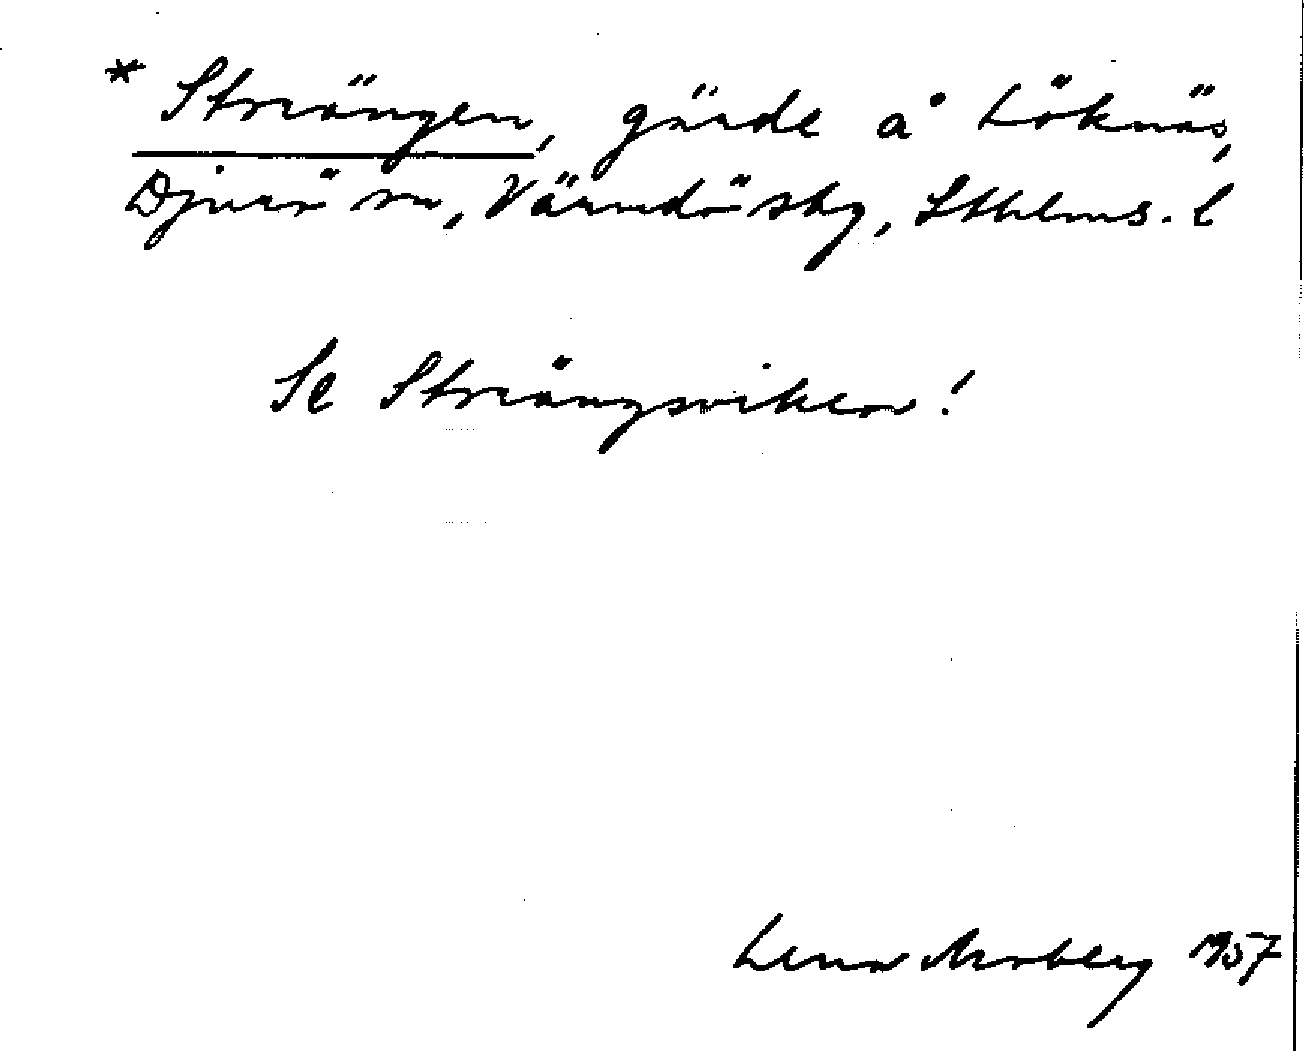 * Striängen, gärde å Löknäs,
Djurö sn, Värmdö sky, Sthlms. l
Se Striängsviken!
Lena Moberg 1957